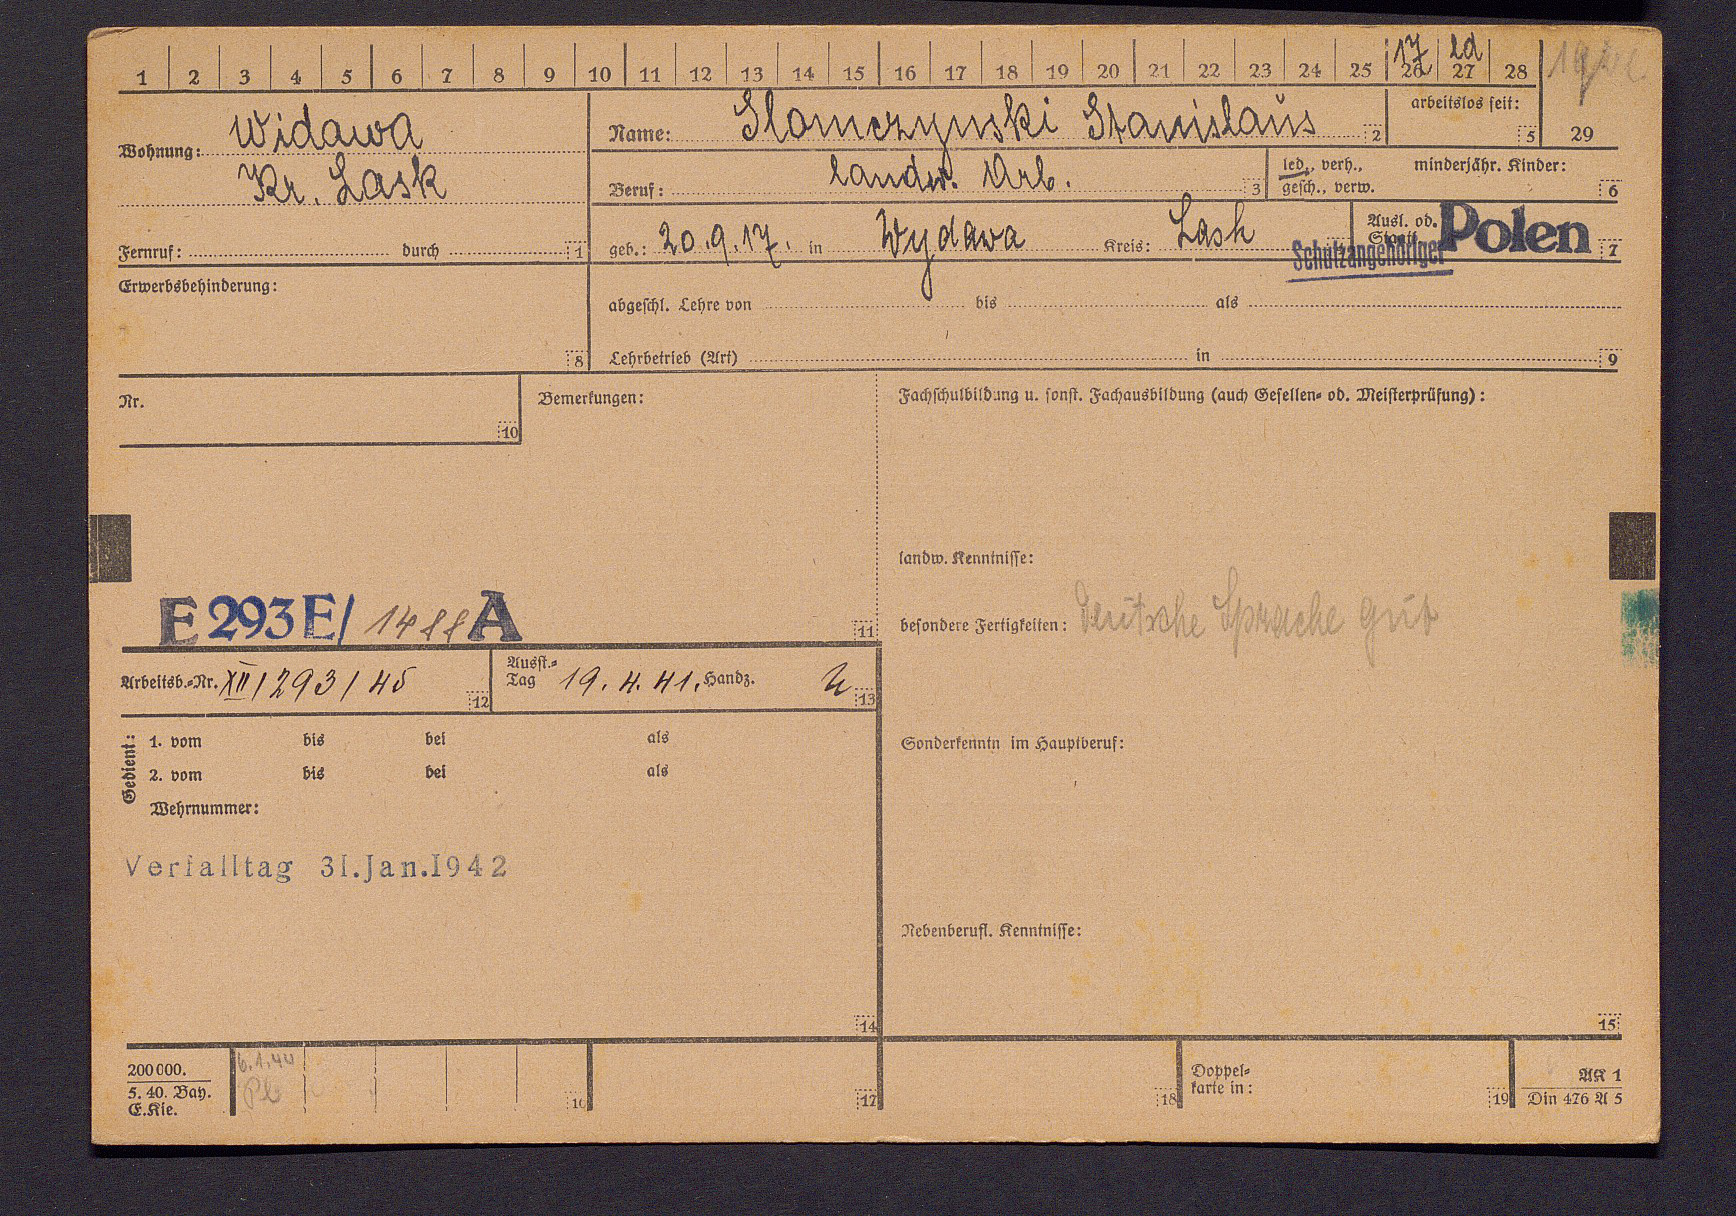 1 2 3 4 5 6 7 8 9 10 11 12 13 14 15 16 17 18 19 20 21 22 23 24 25 26 27 28 29
17 ld
Wohnung: Widawa
Kr. Lask
Fernruf: durch 1
Name: Slomczynski Stanislaus 2
arbeitslos seit: 5
Beruf: landw. Arb. 3
led., verh., gesch., verw. minderjähr. Kinder: 6
geb.: 20.9.17. in Wydawa Kreis: Lask
Ausl. od. Staatl. Polen 7
Schutzangehöriger
Erwerbsbehinderung: 8
abgeschl. Lehre von bis als
Lehrbetrieb (Art) in 9
Nr. 10
Bemerkungen:
E 293 E/ 1488 A 11
Arbeitsb.-Nr. XII/293/45 12
Ausst.-Tag 19.4.41. Handz. 13
Gedient:
1. vom bis bei als
2. vom bis bei als
Wehrnummer:
Verfalltag 31.Jan.1942
14
Fachschulbildung u. sonst. Fachausbildung (auch Gesellen- od. Meisterprüfung):
landw. Kenntnisse:
besondere Fertigkeiten: Deutsche Sprache gut
Sonderkenntn im Hauptberuf:
Nebenberufl. Kenntnisse:
15
200000.
5. 40. Bay.
E.Kie.
6.1.44
16 17 18
Doppel-
karte in: 19
AK 1
Din 476 A 5